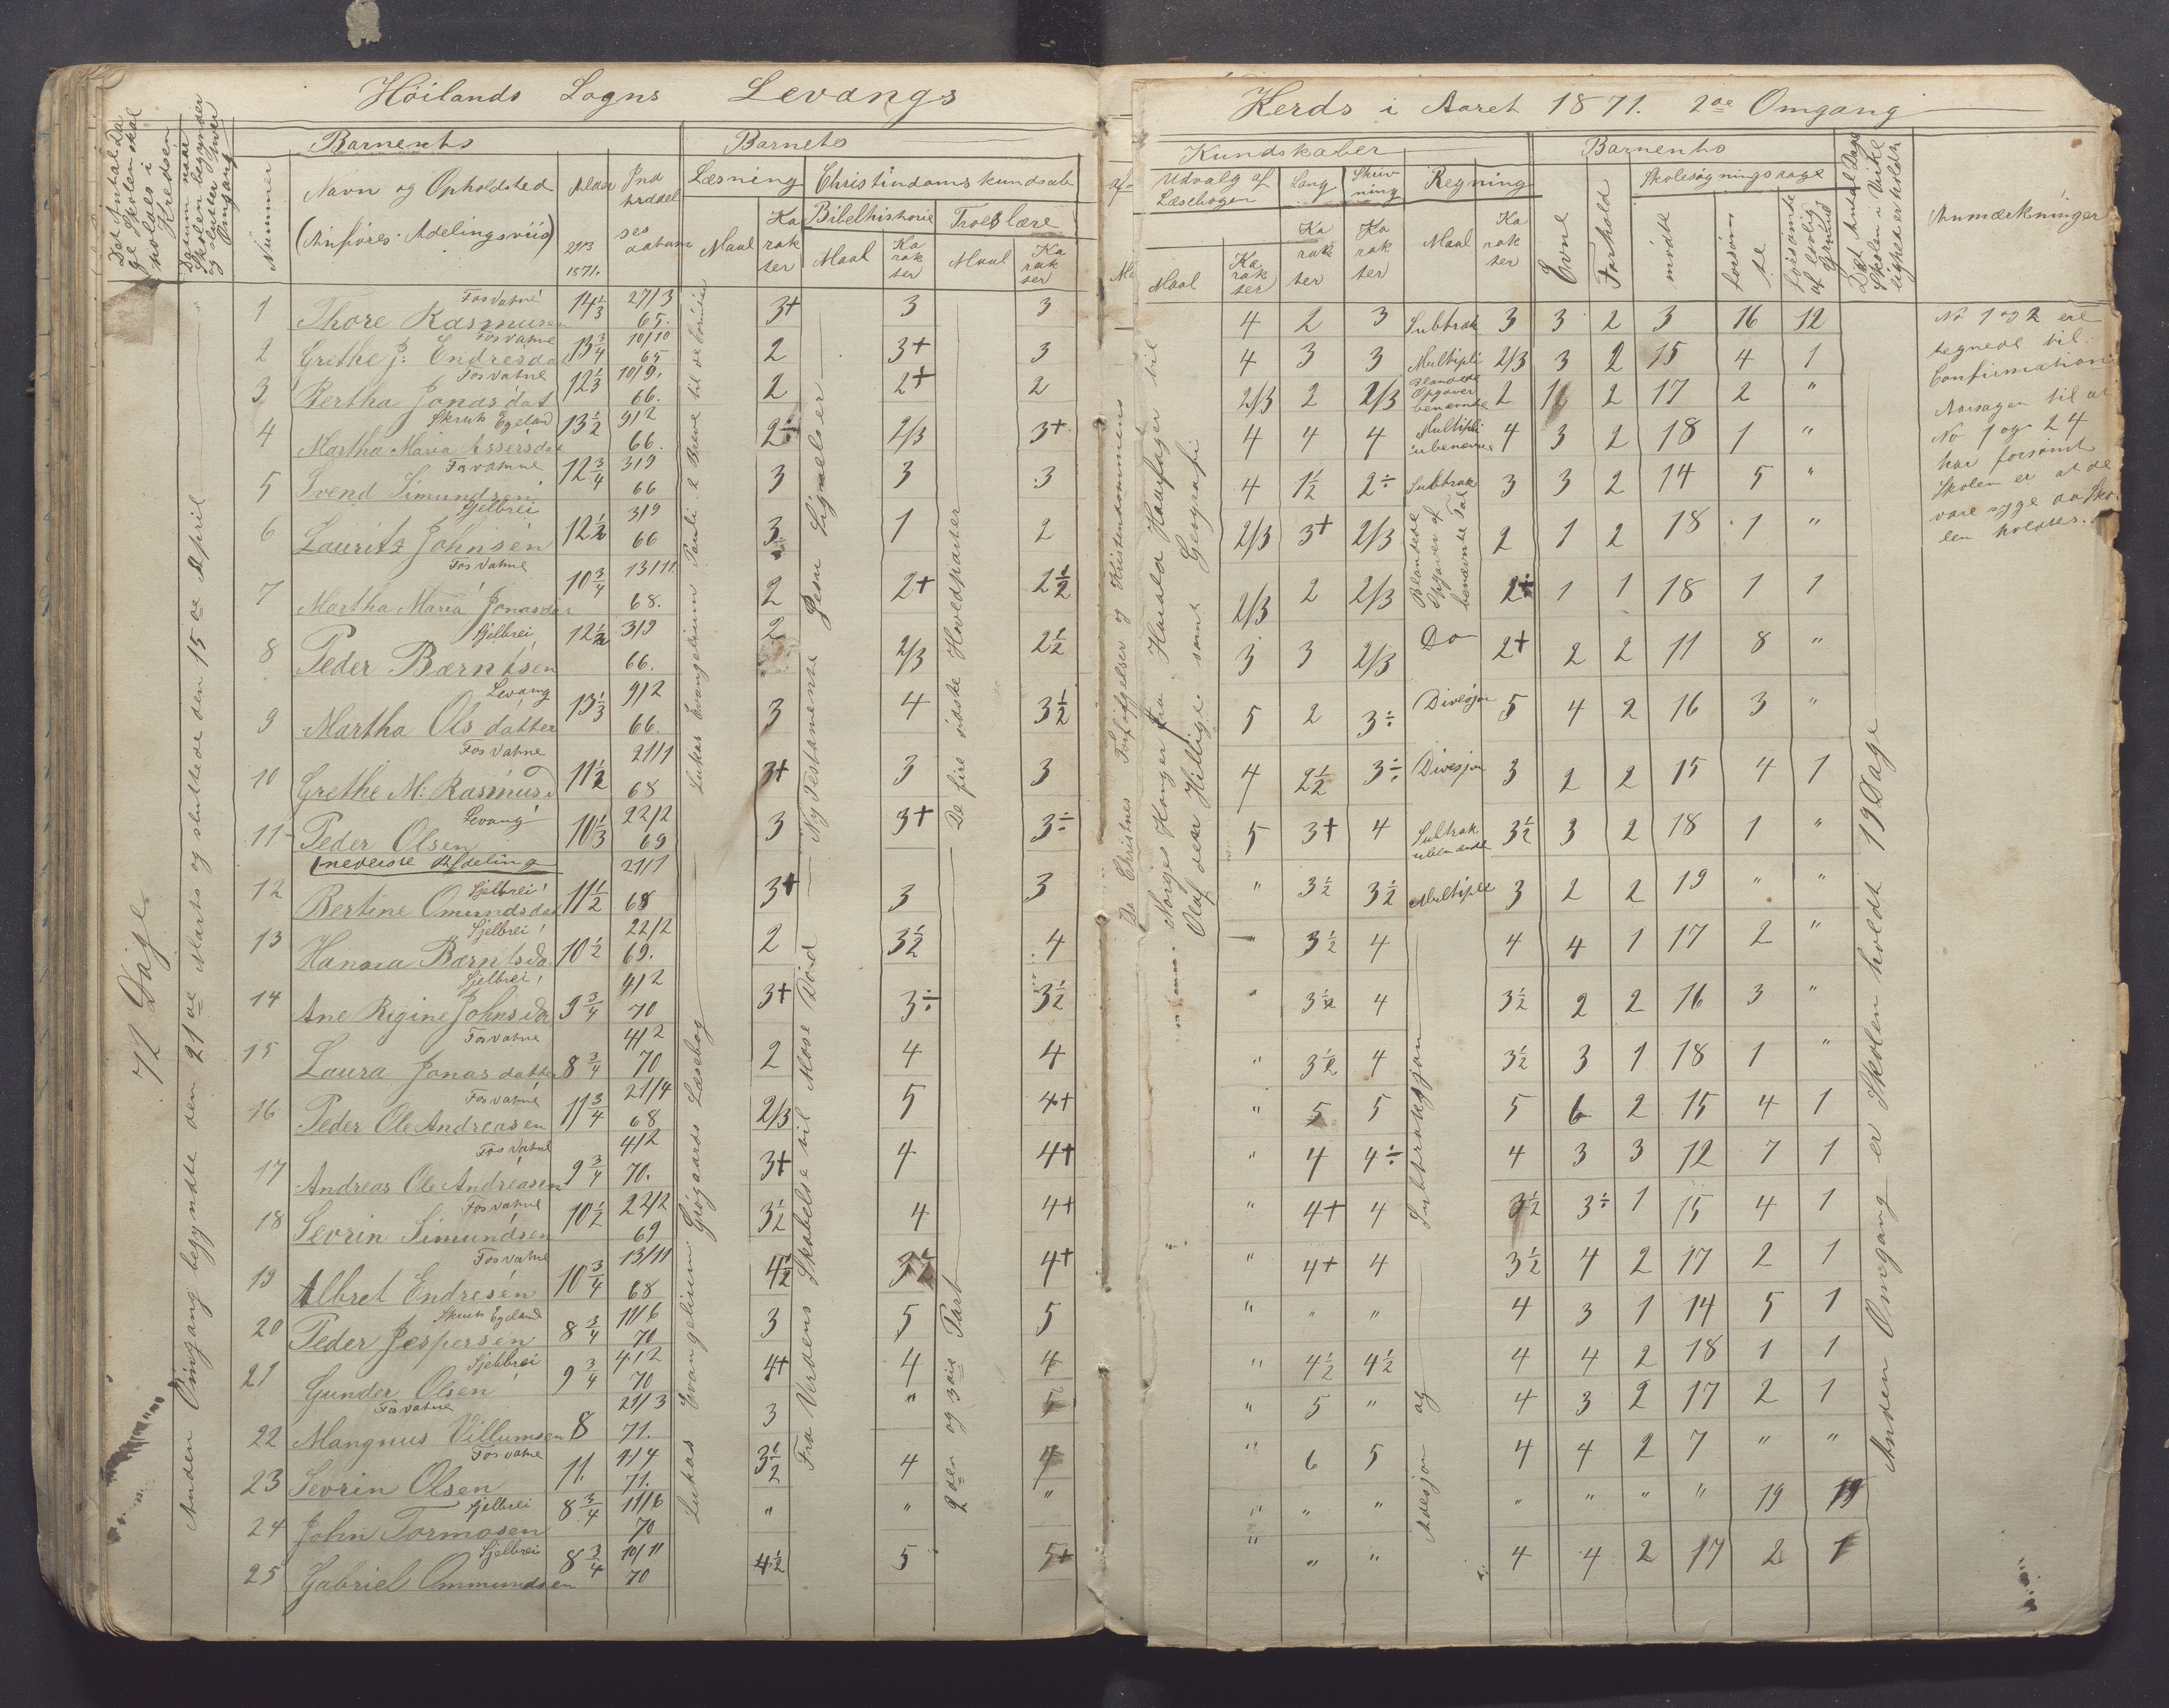 Høilands Sogns Levangs Kerds i Aaret 1871. 2de Omgang
Det Antal Dage Skolen skal holdes i Kredsen
Datum naar Skolen begynder og slutter hver Omgang
Nummer
Barnents
Navn og Opholdsted
(Anføres Adelingsviis)
Alder
21/3
1871.
Indtrædelses datum
Barnets
Læsning
Maal
Karakter
Christindomskundsab
Bibelhistorie
Maal
Karakter
Troeslære
Maal
Karakter
Kundskaber
Udvalg af Læsebogen
Maal
Karakter
Sang
Karakter
Skrivning
Karakter
Regning
Maal
Karakter
Barnents
Evne
Forhold
Skolesøgningsdage
mødte
forsømte
forsømte af lovlig Grund
Det Antal Dage Skolen i Virkelighed er holdt
Anmærkninger
72 Dage
Anden Omgang begyndte den 21de Marts og sluttede den 15de April
1 Thore Rasmusen Fosvatne 14 1/3 27/3 65. 3+ 3 3 4 2 3 Subtrak 3 3 2 3 16 12
2 Grethe J. Endresdat Fosvatne 13 3/4 10/10 65 2 3+ 3 4 3 3 Multipli 2/3 3 2 15 4 1
3 Bertha Jonasdat Fosvatne 12 1/3 10/9. 66. 2 2+ 2 2/3 2 2/3 Blandede Opgaver benævnte 2 2 17 2 "
4 Martha Maria Assersdat Skrut Egeland 13 1/2 9/2 66. 2÷ 2/3 3+ 4 4 4 Multipli ubenævn 4 3 2 18 1 "
5 Svend Simundsen Fosvatne 12 3/4 3/9 66 3 3 3 4 1 1/2 2÷ Subtrak 3 3 2 14 5 "
6 Lauritz Johnsen Sjelbrei 12 1/2 3/9 66 3 1 2 2/3 3+ 2/3 Blandede Opgaver af benævnte Tal 2 1 2 18 1 "
7 Martha Maria Jonasdat Fosvatne 10 3/4 13/11 68. 2 2+ 2 1/2 2/3 2 2/3 2÷ 1 1 18 1 1
8 Peder Bærntsen Sjelbrei 12 1/2 3/9 66. 2 2/3 2 1/2 3 3 2/3 Do 2+ 2 2 11 8 "
9 Martha Ols datter Levang 13 1/3 9/2 66. 3 4 3 1/2 5 2 3÷ Divesjon 5 4 2 16 3 "
10 Grethe M. Rasmusd Fosvatne 11 1/2 21/1 68 3+ 3 3 4 2 1/2 3÷ Divesjon 3 2 2 15 4 1
11 Peder Olsen Levang 10 1/3 22/2 69 3 3+ 3÷ 5 3+ 4 Subtrak 3 1/2 3 2 18 1 "
(nederste Afdeling
12 Bertine Omundsdat Sjelbrei 11 1/2 21/1 68 3+ 3 3 " 3 1/2 3 1/2 Multipli 3 2 2 19 " "
13 Hanna Bærntsda Sjelbrei 10 1/2 22/2 69. 2 3 1/2 4 — 3 1/2 4 4 4 1 17 2 "
14 Ane Rigine Johnsda Sjelbrei 9 3/4 4/2 70 3+ 3÷ 3 1/2 " 3 1/2 4 3 1/2 2 2 16 3 "
15 Laura Jonas datter Fosvatne 8 3/4 4/2 70 2 4 4 " 3 1/2 4 3 1/2 3 1 18 1 "
16 Peder Ole Andreasen Fosvatne 11 3/4 21/4 68 2/3 5 4+ " 5 5 5 6 2 15 4 1
17 Andreas Ole Andreasen Fosvatne 9 3/4 4/2 70. 3+ 4 4+ " 4 4÷ 4 3 3 12 7 1
18 Sevrin Simundsen Fosvatne 10 1/2 22/2 69 3 1/2 4 4+ " 4+ 4 3 1/2 3÷ 1 15 4 1
19 Albret Endresen Fosvatne 10 3/4 13/11 68 4 1/2 3 1/2 4+ " 4+ 4 3 1/2 4 2 17 2 1
20 Peder Jespersen Skrut Egeland 8 3/4 11/6 70 3 5 5 " " " 4 3 1 14 5 1
21 Gunder Olsen Sjelbrei 9 3/4 4/2 70 4+ 4 4 " 4 1/2 4 1/2 4 4 2 18 1 1
22 Mangnus Villumsen Fosvatne 8 21/3 71. 3 " 5 " 5 " 4 3 2 17 2 1
23 Sevrin Olsen Fosvatne 11. 4/4 71. 3 1/2 4 4 " 6 5 4 4 2 7 " "
24 John Tormosen Sjelbrei 8 3/4 11/6 70 " " " " " " " " " " 19 19
25 Gabriel Ommundsen Sjelbrei 8 3/4 10/11 70 4 1/2 5 5+ " " " 4 4 2 17 2 1
Lukas Evangelium Pauli 2 Breve til de
Lukas Evangelium. Grøgaards Læsebog
Ny Testamente Jesu Lignelser
Fra Verdens Skabelse til Mose Død
De fire sidste Hovedparter
2den og 3die Part
De Christnes Forfølgelser og Kristendommens
Norges Konger fra Harald Haarfager til
Olaf den Hellige. samt Geografi
Adesjon og Subtraksjon
Anden Omgang er Skolen holdt 19 Dage
No 1 og 2 ere
tegnede til
Confirmation
Aarsagen til at
No 1 og 24
har forsømt
Skolen er at de
vare syge da Skolen
holdtes.